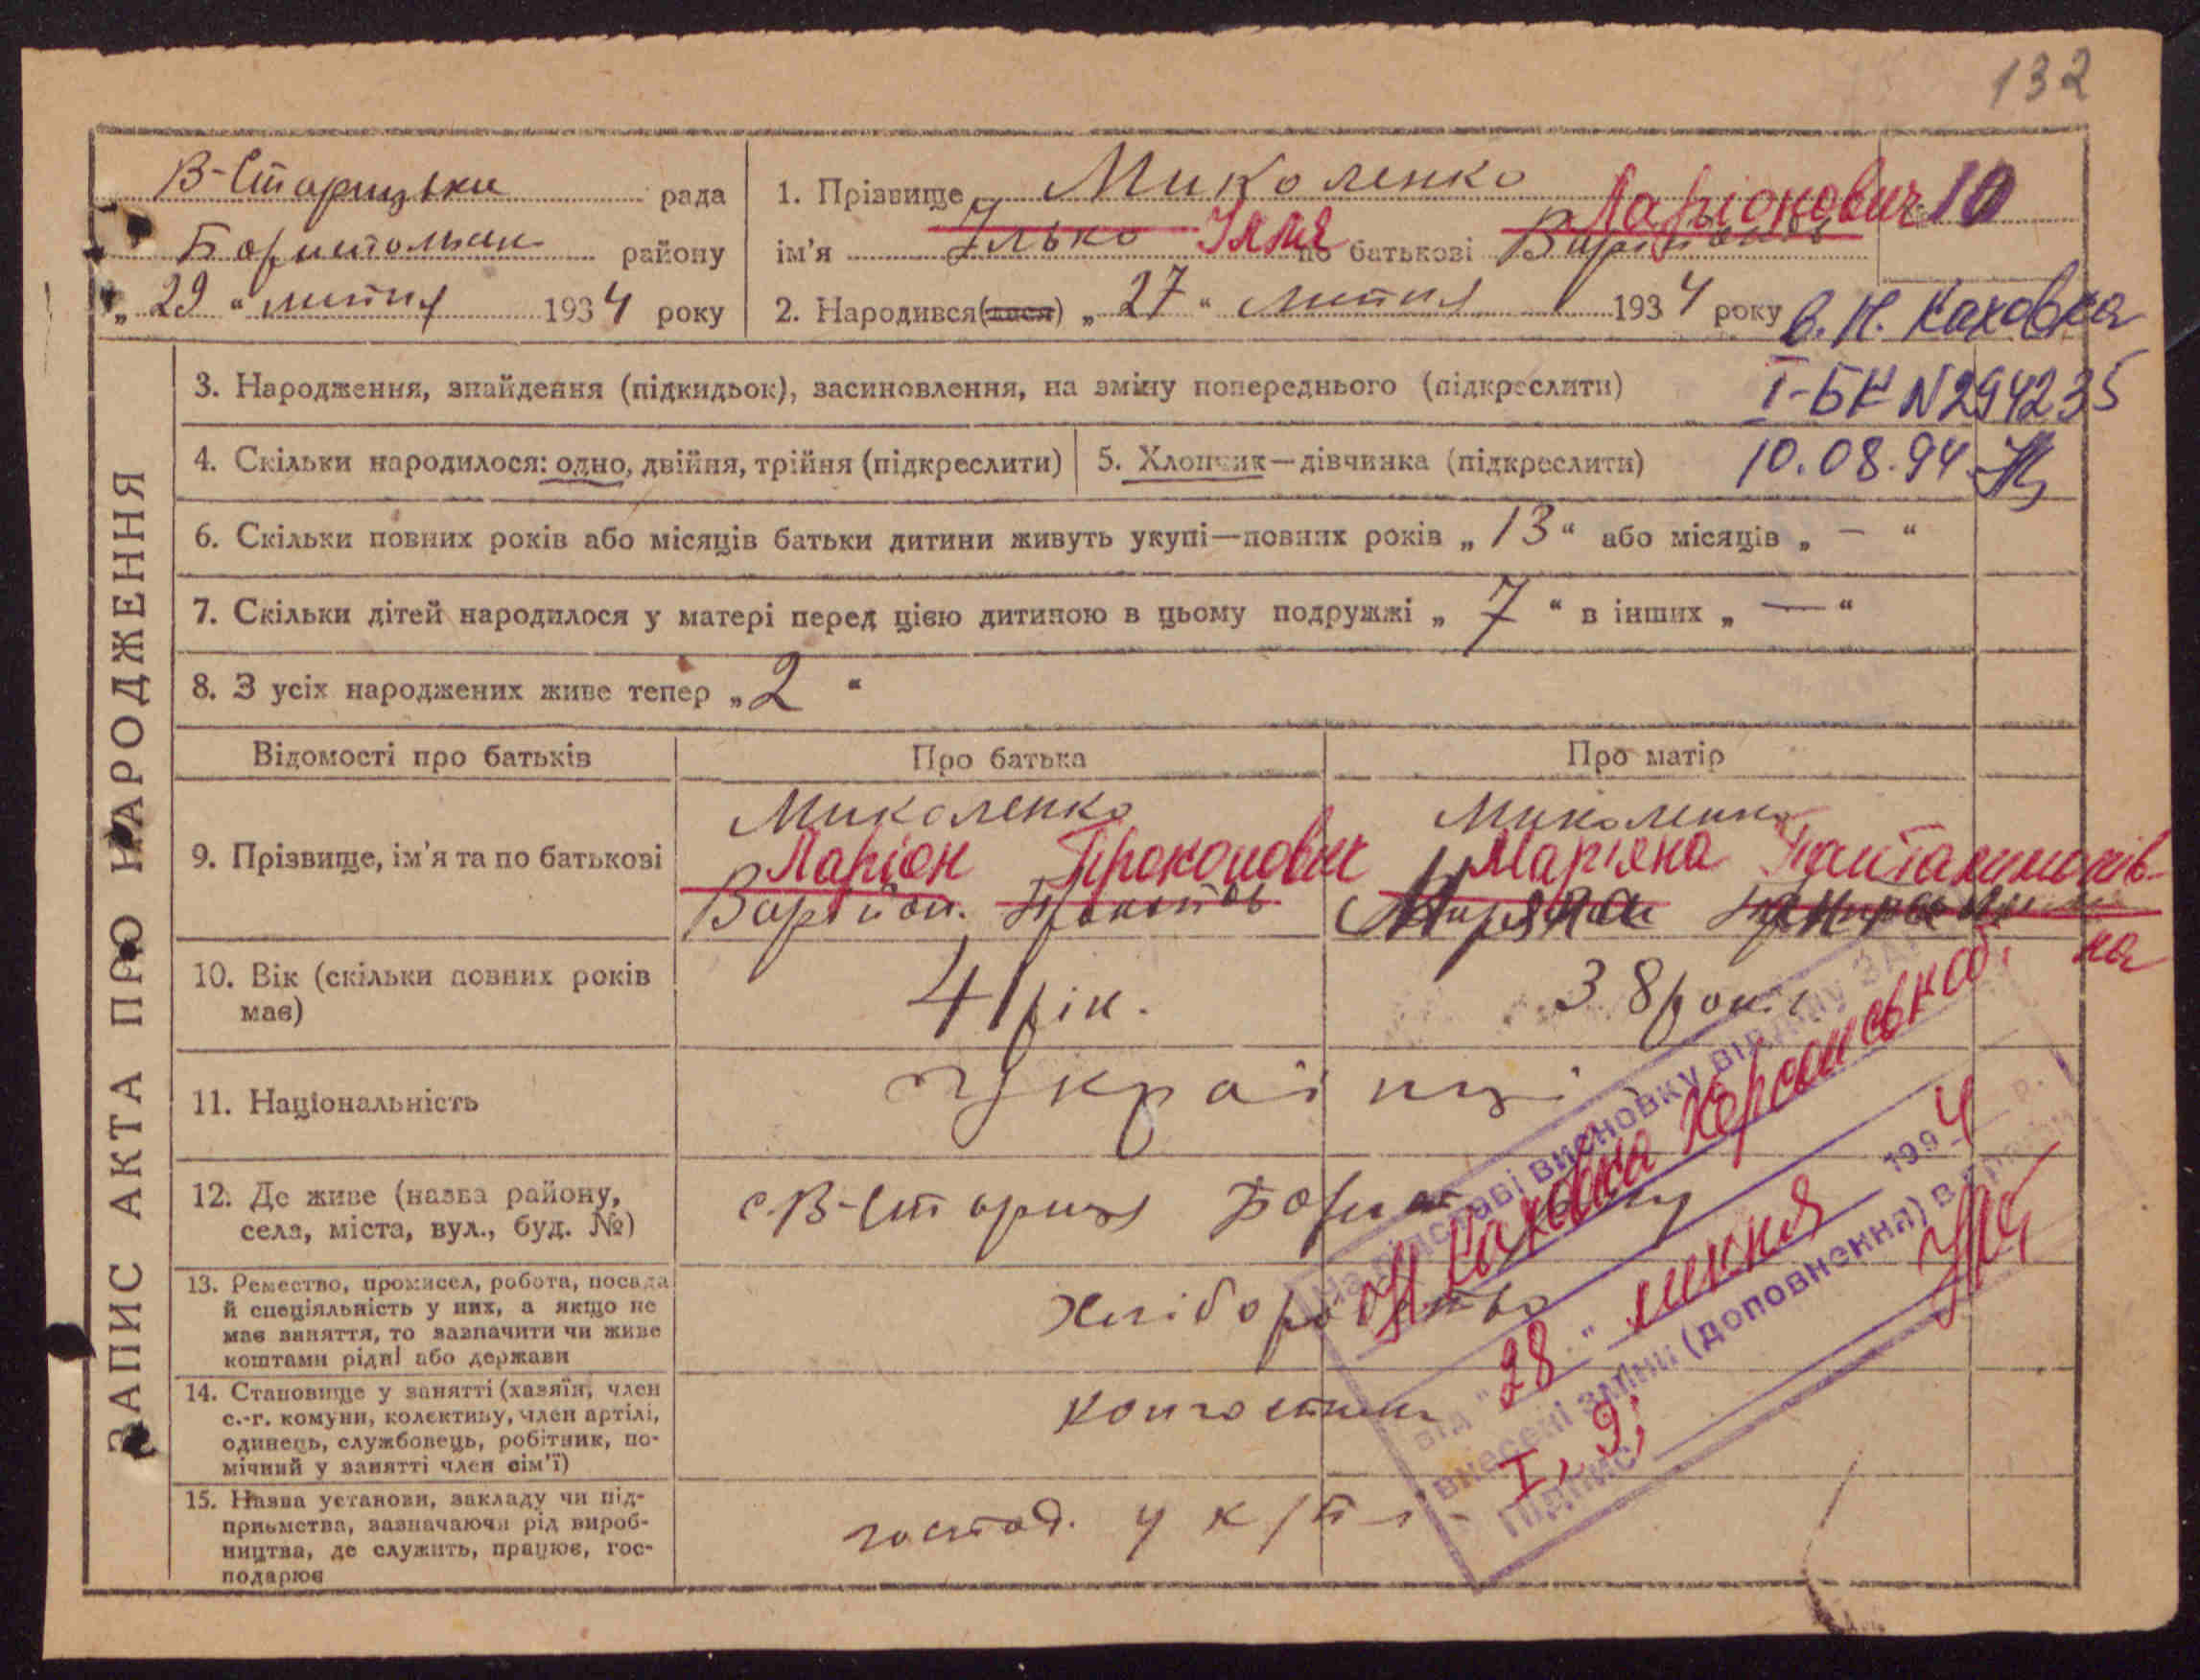 132
В-Старицька рада
Бориспольськ району
„ 29 “ липня 1934 року
1. Прізвище Миколенко
10
ім'я Ілько Ілля по батькові Ларіонович
2. Народився(лася) „ 27 “ липня 1934 року
в. Н. Каховка
3. Народження, знайдення (підкидьок), засиновлення, на зміну попереднього (підкреслити)
I-БК N294235
4. Скільки народилося: одно, двійня, трійня (підкреслити)
5. Хлопчик—дівчинка (підкреслити)
10.08.94
6. Скільки повних років або місяців батьки дитини живуть укупі—повних років „ 13 “ або місяців „ — “
7. Скільки дітей народилося у матері перед цією дитиною в цьому подружжі „ 7 “ в інших „ — “
8. З усіх народжених живе тепер „ 2 “
ЗАПИС АКТА ПРО НАРОДЖЕННЯ
Відомості про батьків
Про батька
Про матір
9. Прізвище, ім'я та по батькові
Миколенко
Ларіон Прокопович
Миколенко
Мар'яна Панталимонів-
на
10. Вік (скільки повних років
має)
41 рік.
38 років
11. Національність
Українці
12. Де живе (назва району,
села, міста, вул., буд. №)
с. В-Стариця
13. Ремество, промисел, робота, посада
й спеціяльність у них, а якщо не
має заняття, то зазначити чи живе
коштами рідні або держави
Хліборобство
14. Становище у занятті (хазяїн, член
с.-г. комуни, колективу, член артілі,
одинець, службовець, робітник, по-
мічний у занятті член сім'ї)
15. Назва установи, закладу чи під-
приємства, зазначаючи рід вироб-
ництва, де служить, працює, гос-
подарює
господ. у к/г
На підставі висновку відділу ЗАГС
Н Каховка Херсонської об.
від " 28 " липня 1994 р.
внесені зміни (доповнення) в графи
I, 9;
Підпис